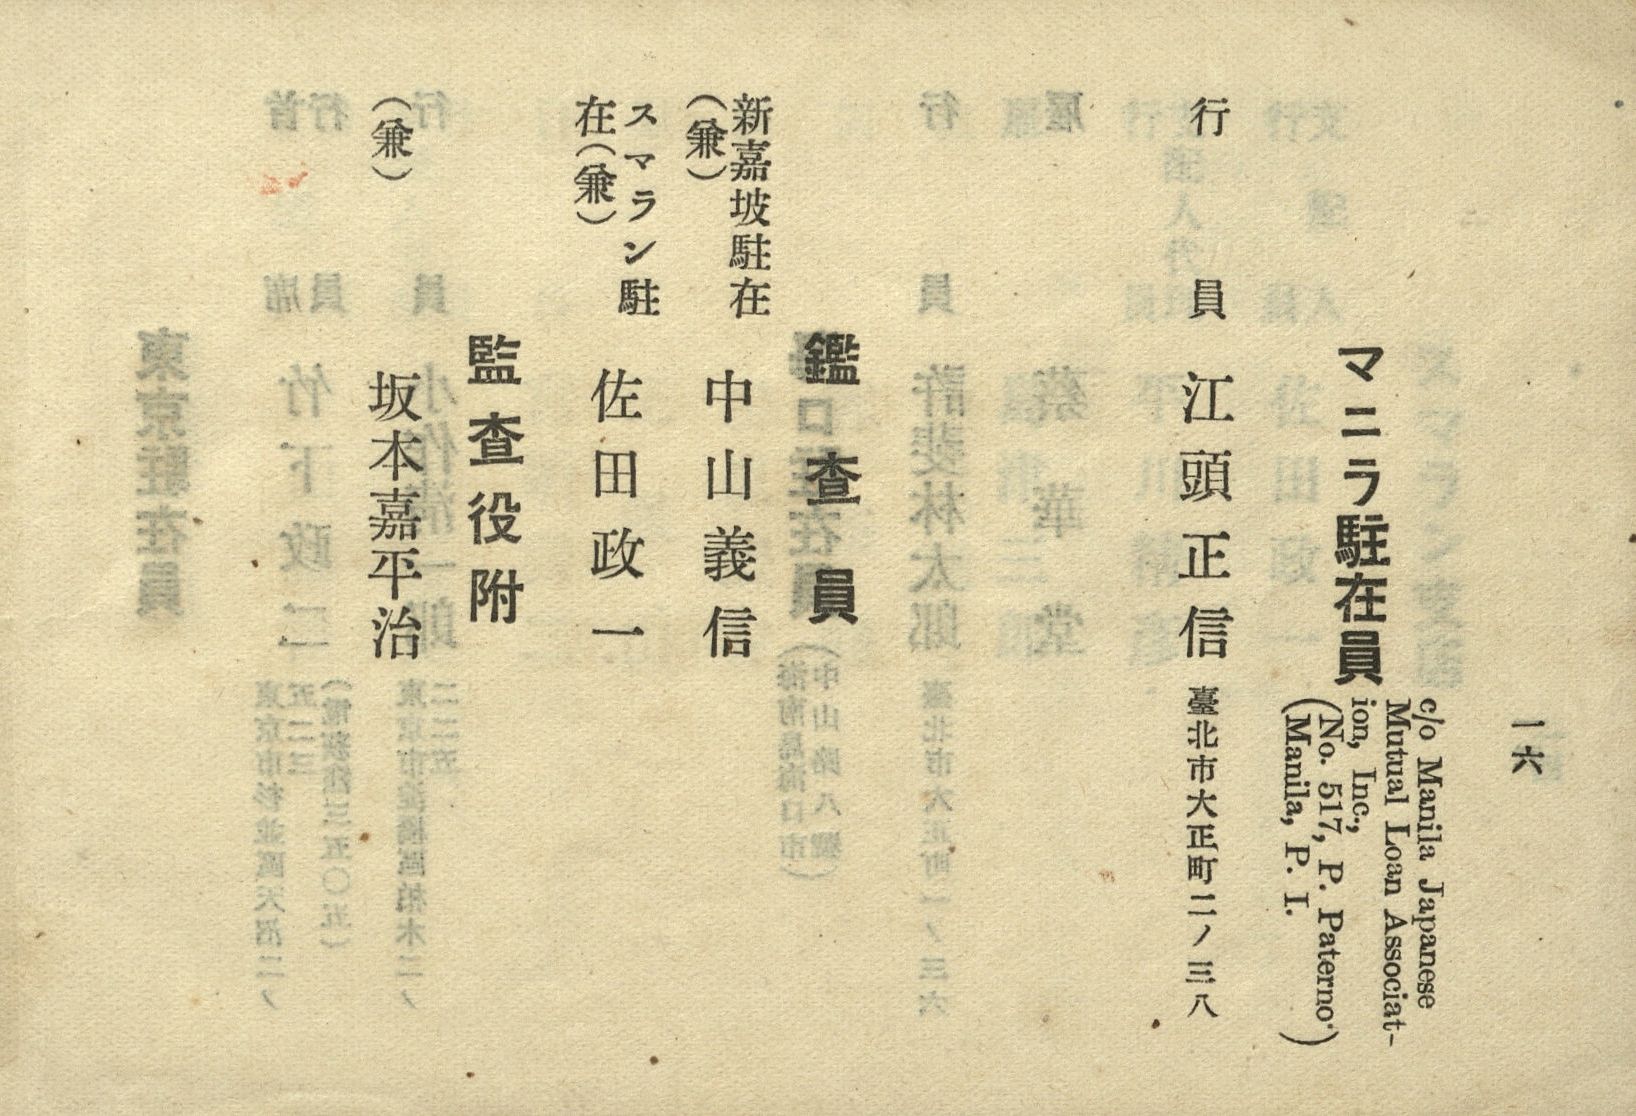 一六
マニラ駐在員
c/o Manila Japanese
Mutual Loan Associat-
ion, Inc.,
(No. 517, P. Paterno.
Manila, P. I.)
行員 江頭正信 臺北市大正町二ノ三八
鑑査員
新嘉坡駐在
(兼)
中山義信
スマラン駐
在(兼)
佐田政一
監査役附
(兼) 坂本嘉平治